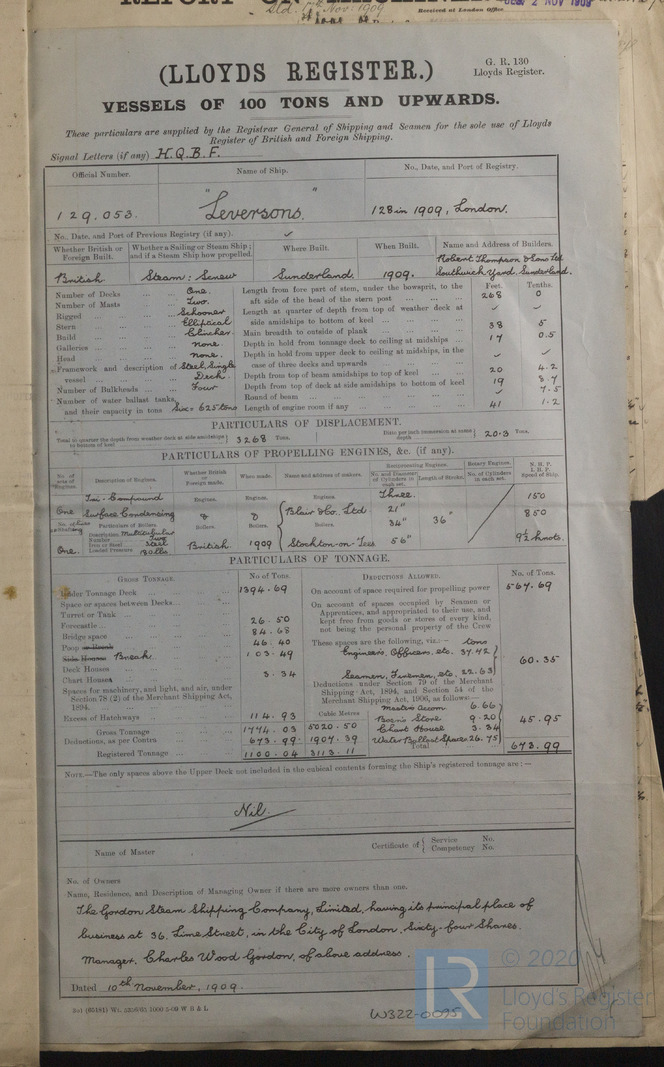 Received at London Office 2 NOV 1909
Nov: 1909
(LLOYDS REGISTER.)
G. R. 130
Lloyds Register.
VESSELS OF 100 TONS AND UPWARDS.
These particulars are supplied by the Registrar General of Shipping and Seamen for the sole use of Lloyds
Register of British and Foreign Shipping.
Signal Letters (if any) H.Q.B.F.
Official Number. Name of Ship. No., Date, and Port of Registry.
129,053. "Leversons" 128 in 1909, London.
No., Date, and Port of Previous Registry (if any).
Whether British or Foreign Built. Whether a Sailing or Steam Ship; and if a Steam Ship how propelled. Where Built. When Built. Name and Address of Builders.
British Steam: Screw Sunderland 1909. Robert Thompson & Sons Ltd Southwick Yard Sunderland.
Feet. Tenths.
Number of Decks ... ... One. Length from fore part of stem, under the bowsprit, to the aft side of the head of the stern post ... 268 0
Number of Masts ... Two.
Rigged ... Schooner Length at quarter of depth from top of weather deck at side amidships to bottom of keel ...
Stern ... Elliptical Main breadth to outside of plank ... 38 5
Build ... Clincher. Depth in hold from tonnage deck to ceiling at midships ... 17 0.5
Galleries ... none Depth in hold from upper deck to ceiling at midships, in the case of three decks and upwards ...
Head ... none.
Framework and description of vessel ... Steel, Single Deck. Depth from top of beam amidships to top of keel ... 20 4.2
Number of Bulkheads ... Four Depth from top of deck at side amidships to bottom of keel 19 8.7
Number of water ballast tanks, and their capacity in tons Six = 625 tons Round of beam ... 7.5
Length of engine room if any ... 41 1.2
PARTICULARS OF DISPLACEMENT.
Total to quarter the depth from weather deck at side amidships to bottom of keel 3268 Tons. Ditto per inch immersion at same depth 20.3 Tons.
PARTICULARS OF PROPELLING ENGINES, &c. (if any).
No. of sets of Engines. Description of Engines. Whether British or Foreign made. When made. Name and address of makers. Reciprocating Engines. No. and Diameter of Cylinders in each set. Length of Stroke. Rotary Engines. No. of Cylinders in each set. N. H. P. I. H. P. Speed of Ship.
Engines. Engines. Engines.
Tri-Compound Three. 150
One Surface Condensing Blair & Co., Ltd 21" 850
Particulars of Boilers. Boilers. Boilers. Boilers. 34" 36"
Description Multitubular
Number Two
Iron or Steel Steel
One. Loaded Pressure 180 lbs British 1909 Stockton-on-Tees 56" 9½ knots.
PARTICULARS OF TONNAGE.
GROSS TONNAGE. No of Tons. DEDUCTIONS ALLOWED. No. of Tons.
Under Tonnage Deck ... 1394.69 On account of space required for propelling power 567.69
Space or spaces between Decks ...
Turret or Trunk ... On account of spaces occupied by Seamen or Apprentices, and appropriated to their use, and kept free from goods or stores of every kind, not being the personal property of the Crew
Forecastle ... 26.50
Bridge space ... 84.68
Poop or Break ... 46.40 These spaces are the following, viz:— tons
Side Houses Break 103.49 Engineers, Officers, etc. 37.72 60.35
Deck Houses ... 3.34 Seamen, Firemen, etc. 22.63
Chart Houses ... Deductions under Section 79 of the Merchant Shipping Act, 1894, and Section 54 of the Merchant Shipping Act, 1906, as follows:—
Spaces for machinery, and light, and air, under Section 78 (2) of the Merchant Shipping Act, 1894. ... Master's Accom 6.66
Excess of Hatchways ... 114.93 Cubic Metres Bosn's Store 9.20 45.95
Gross Tonnage ... 1774.03 5020.50 Chart House 3.34
Deductions, as per Contra ... 673.99 1907.39 Water Ballast Space 26.75
Registered Tonnage ... 1100.04 3113.11 Total 673.99
NOTE.—The only spaces above the Upper Deck not included in the cubical contents forming the Ship's registered tonnage are:—
Nil.
Name of Master Certificate of { Service No. Competency No.
No. of Owners
Name, Residence, and Description of Managing Owner if there are more owners than one.
The Gordon Steam Shipping Company, Limited, having its principal place of
business at 36, Lime Street, in the City of London, Sixty-four Shares.
Manager, Charles Wood Gordon, of above address.
Dated 10th November, 1909.
W322-0095
LR
© 2020
Lloyd's Register
Foundation